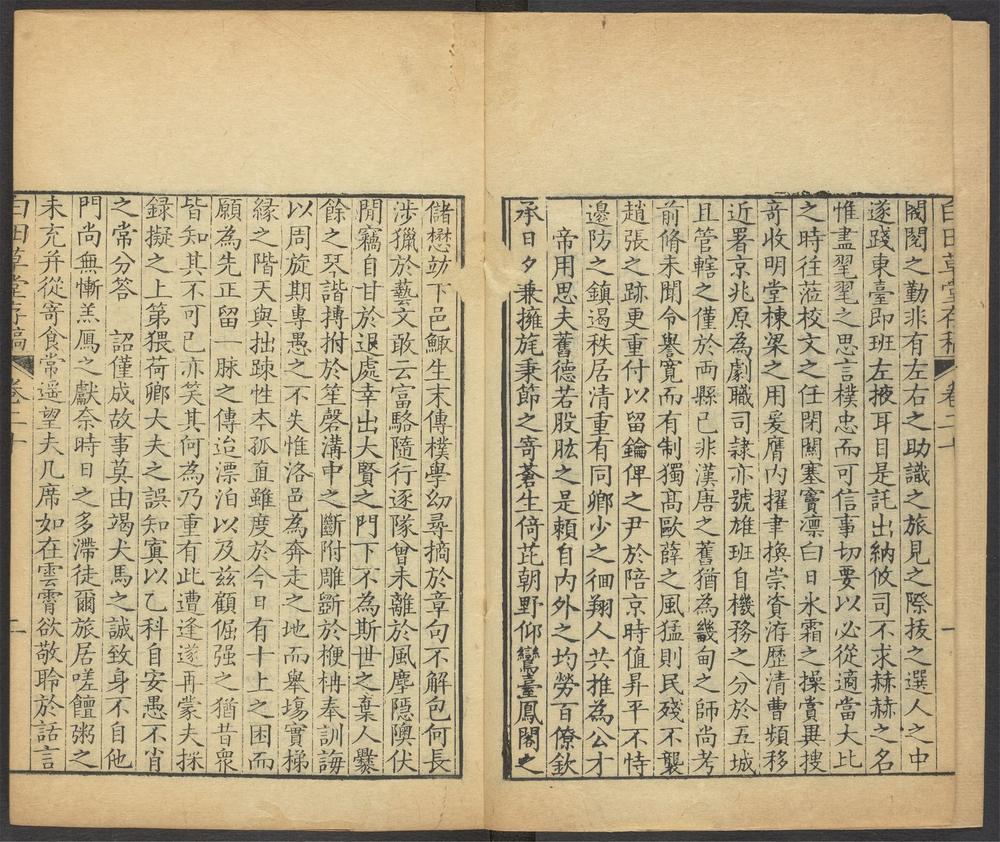 白田草堂存稿 卷二十 一
閥閱之勤非有左右之助識之旅見之際拔之選人之中
遂踐東臺即班左掖耳目是託出納攸司不求赫赫之名
惟盡翼翼之思言樸忠而可信事切要以必從適當大比
之時往蒞校文之任閉關塞竇凛白日氷霜之操賞異搜
奇收明堂棟梁之用爰膺內擢聿換崇資洊歷清曹頻移
近署京兆原為劇職司隷亦號雄班自機務之分於五城
且管轄之僅於两縣已非漢唐之舊猶為畿甸之師尚考
前脩未聞令譽寛而有制獨髙歐薛之風猛則民殘不襲
趙張之跡更重付以留鑰俾之尹於陪京時值昇平不恃
邊防之鎮遏秩居清重有同卿少之徊翔人共推為公才
帝用思夫舊德若股肱之是賴自內外之均勞百僚欽
承日夕兼擁旄秉節之寄蒼生倚芘朝野仰鸞臺鳳閣之
儲懋竑下邑鯫生末傳樸學幼尋摘於章句不解包何長
涉獵於藝文敢云富駱隨行逐隊曾未離於風塵隱隩伏
閒竊自甘於退處幸出大賢之門下不為斯世之棄人爨
餘之琴諧搏拊於笙磬溝中之斷附雕斵於梗枏奉訓誨
以周旋期專愚之不失惟洛邑為奔走之地而舉塲實梯
緣之階天與拙踈性本孤直雖度於今日有十上之困而
願為先正留一脉之傳迨漂泊以及兹顧倔强之猶昔衆
皆知其不可已亦笑其何為乃重有此遭逢遂再蒙夫採
録擬之上第猥荷鄉大夫之誤知寘以乙科自安愚不肖
之常分答 詔僅成故事莫由竭犬馬之誠致身不自他
門尚無慚羔鴈之獻奈時日之多滯徒爾旅居嗟饘粥之
未充并從寄食常遥望夫几席如在雲霄欲敬聆於話言
白田草堂存稿 卷二十 一